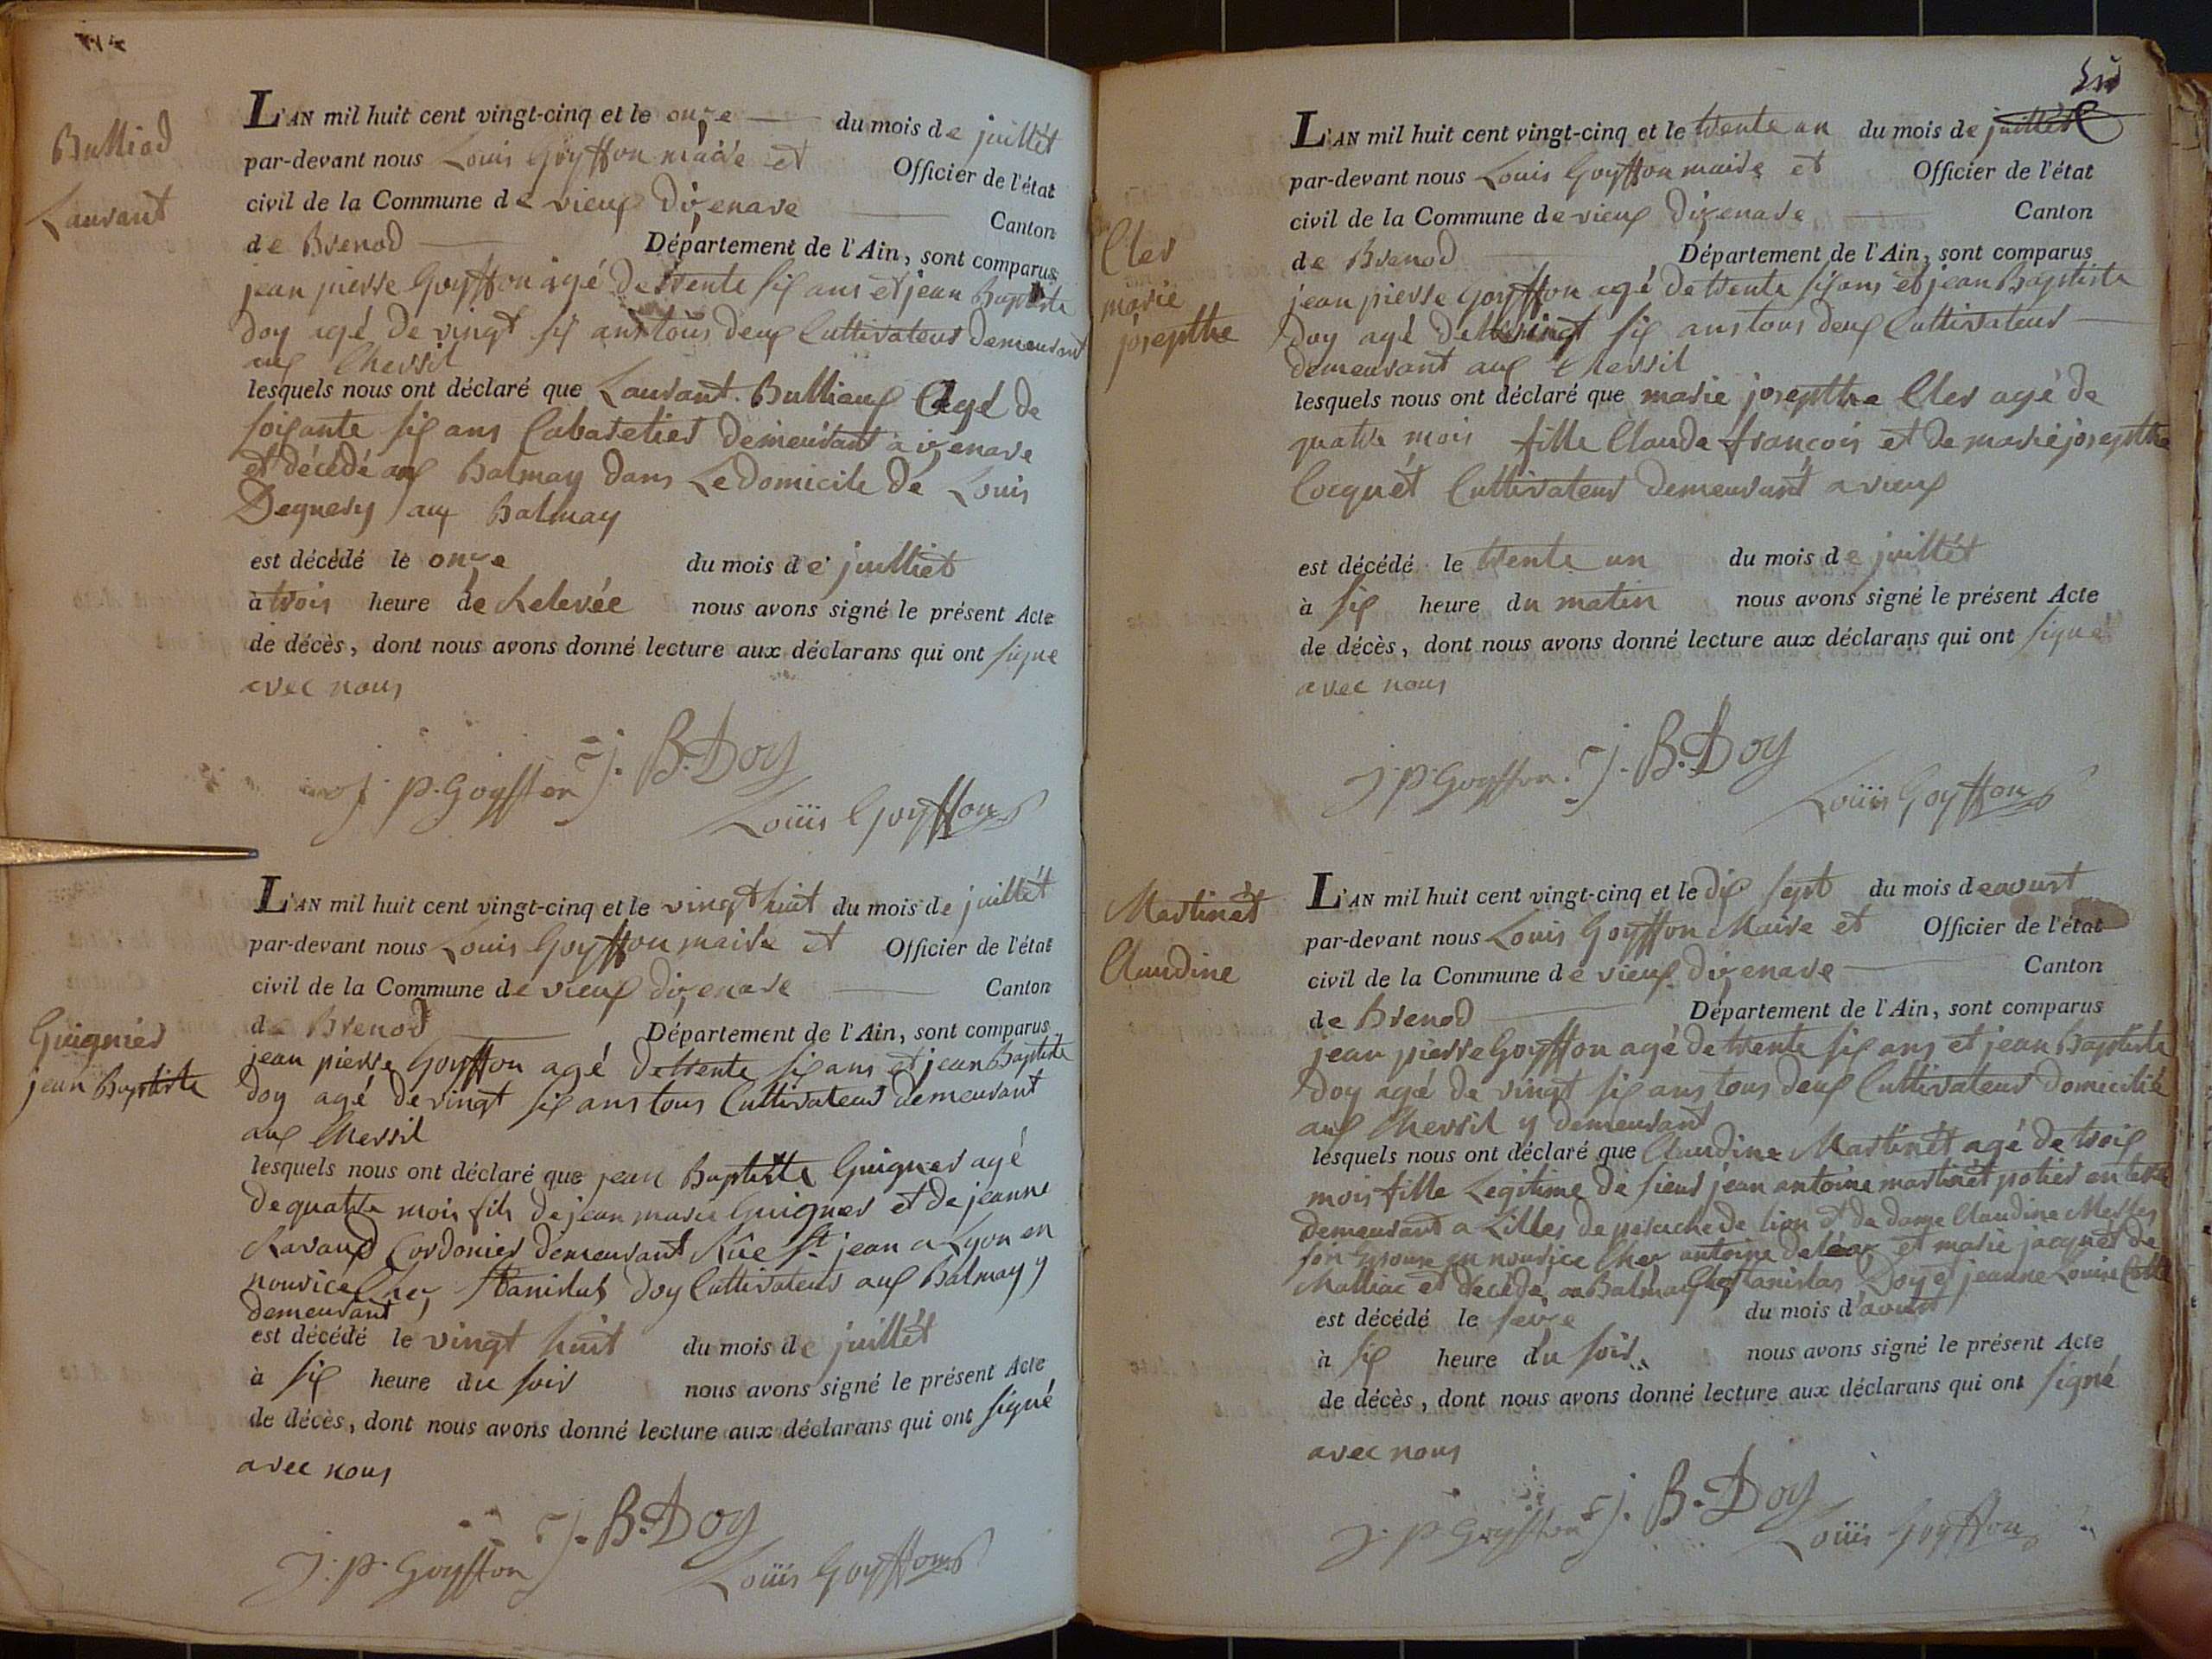 Bulliod
Laurant
L'AN mil huit cent vingt-cinq et le onze du mois de juillét
par-devant nous Louis Goyffon maire et Officier de l'état
civil de la Commune de vieux dizenave Canton
de Brenod Département de l'Ain, sont comparus
jean pierre Goyffon agé de trente six ans et jean Baptiste
Doy agé de vingt six ans tous deux Cultivateur demeurant
aux Chessil
lesquels nous ont déclaré que Laurant Bulliaux Agé de
soixante six ans Cabaretier demeurant a izenave
et décédé aux Balmay dans Le domicile de Louis
aux Balmay
est décédé le onze du mois de juilliet
à trois heure de Relevée nous avons signé le présent Acte
de décès, dont nous avons donné lecture aux déclarans qui ont signé
avec nous
J. P. Goyffon J. B. Doy
Loüis Goyffon
Guignier
jean Baptiste
L'AN mil huit cent vingt-cinq et le vingt huit du mois de juillét
par-devant nous Louis Goyffon maire et Officier de l'état
civil de la Commune de vieux dizenave Canton
de Brenod Département de l'Ain, sont comparus
jean pierre Goyffon agé de trente six ans et jean Baptiste
Doy agé de vingt six ans tous Cultivateur demeurant
aux Chessil
lesquels nous ont déclaré que jean Baptiste Guigner agé
de quatre mois fils de jean marie Guigner et de jeanne
Ravaud Cordonier demeurant Rüe St jean a Lyon en
nourice Chez Stanislas Doy Cultivateur aux Balmay y
demeurant
est décédé le vingt huit du mois de juillét
à six heure du soir nous avons signé le présent Acte
de décès, dont nous avons donné lecture aux déclarans qui ont signé
avec nous
J. P. Goyffon J. B. Doy
Loüis Goyffon
Cler
marie
josepthe
L'AN mil huit cent vingt-cinq et le trente un du mois de juillét
par-devant nous Louis Goyffon maire et Officier de l'état
civil de la Commune de vieux dizenave Canton
de Brenod Département de l'Ain, sont comparus
jean pierre Goyffon agé de trente six ans et jean Baptiste
Doy agé de vingt six ans tous deux Cultivateur
demeurant aux Chessil
lesquels nous ont déclaré que marie josepthe Cler agé de
quatre mois fille Claude françois et de marie josepthe
Cocquét Cultivateur demeurant a vieux
est décédé le trente un du mois de juillét
à six heure du matin nous avons signé le présent Acte
de décès, dont nous avons donné lecture aux déclarans qui ont signé
avec nous
J. P. Goyffon. J. B. Doy
Loüis Goyffon
Martinét
Claudine
L'AN mil huit cent vingt-cinq et le dix sept du mois de avust
par-devant nous Louis Goyffon Maire et Officier de l'état
civil de la Commune de vieux dizenave Canton
de Brenod Département de l'Ain, sont comparus
jean pierre Goyffon agé de trente six ans et jean Baptiste
Doy agé de vingt six ans tous deux Cultivateur domicilié
aux Chessil y demeurant
lesquels nous ont déclaré que Claudine Martinét agé de trois
mois fille Legitime de sieur jean antoine martinét potier en terre
demeurant a Lilles de peruche de lion et de dame Claudine
son Epouse en nourice Cher antoine et marie jacquét de
Malliac et décédé au Balmay Chez Stanislas Doy e jeanne Louise
est décédé le seize du mois d'avust
à six heure du soir nous avons signé le présent Acte
de décès, dont nous avons donné lecture aux déclarans qui ont signé
avec nous
J. P. Goyffon J. B. Doy
Loüis Goyffon